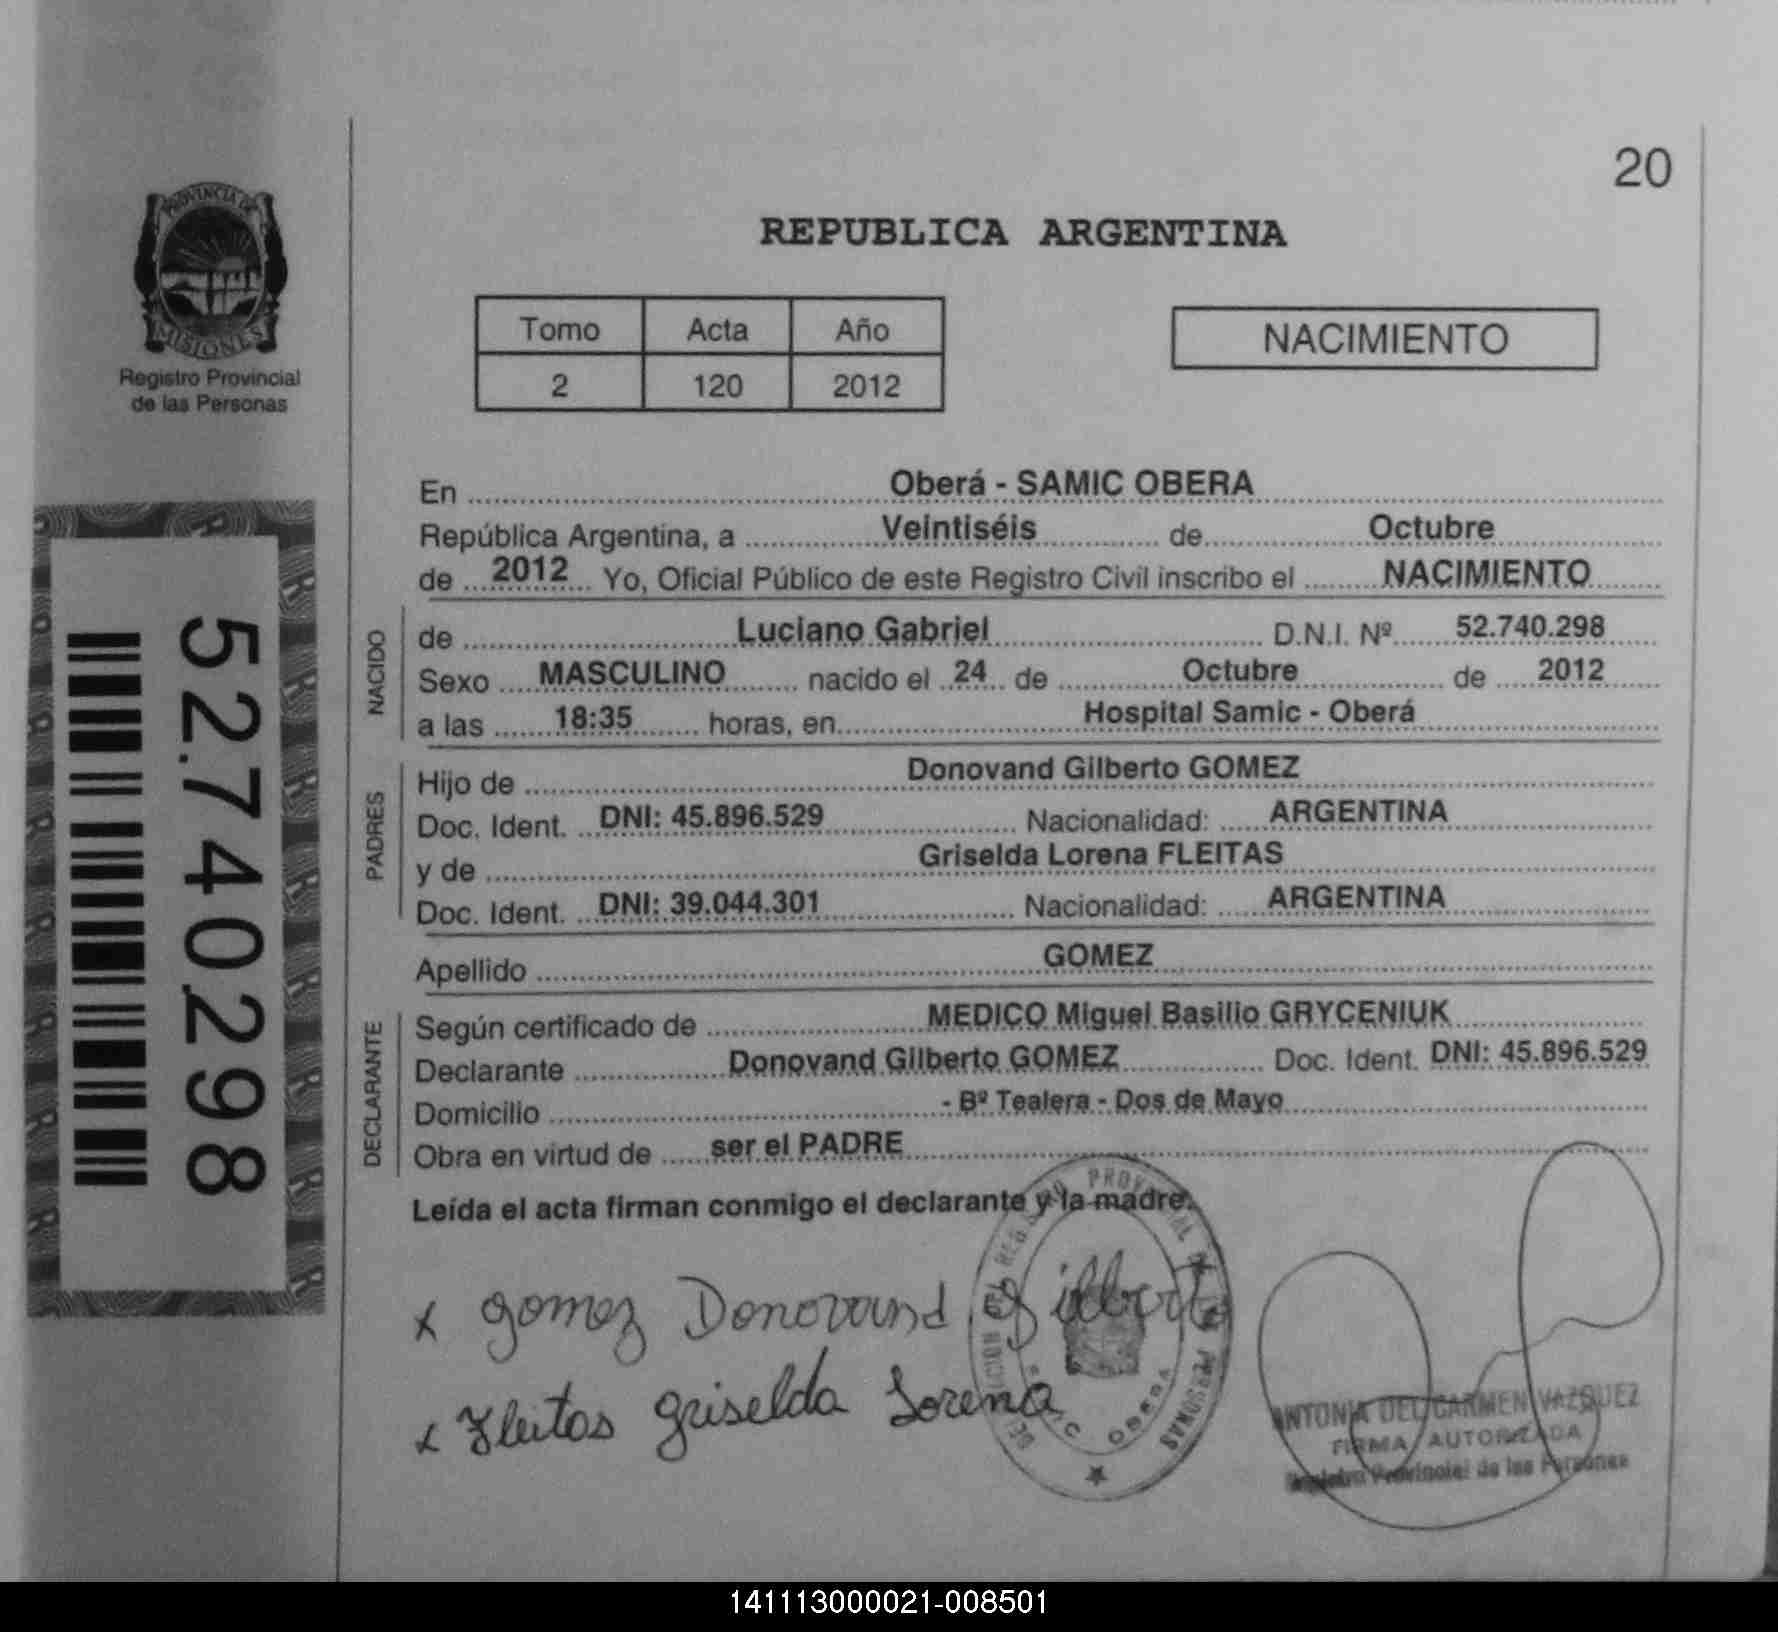 20
PROVINCIA DE
MISIONES
Registro Provincial
de las Personas
REPUBLICA ARGENTINA
Tomo Acta Año
2 120 2012
NACIMIENTO
En Oberá - SAMIC OBERA
República Argentina, a Veintiséis de Octubre
de 2012 Yo, Oficial Público de este Registro Civil inscribo el NACIMIENTO
NACIDO
de Luciano Gabriel D.N.I. Nº 52.740.298
Sexo MASCULINO nacido el 24 de Octubre de 2012
a las 18:35 horas, en Hospital Samic - Oberá
PADRES
Hijo de Donovand Gilberto GOMEZ
Doc. Ident. DNI: 45.896.529 Nacionalidad: ARGENTINA
y de Griselda Lorena FLEITAS
Doc. Ident. DNI: 39.044.301 Nacionalidad: ARGENTINA
Apellido GOMEZ
DECLARANTE
Según certificado de MEDICO Miguel Basilio GRYCENIUK
Declarante Donovand Gilberto GOMEZ Doc. Ident. DNI: 45.896.529
Domicilio - Bº Tealera - Dos de Mayo
Obra en virtud de ser el PADRE
Leída el acta firman conmigo el declarante y la madre.
x gomez Donovand Gilberto
x Fleitas Griselda Lorena
PROVINCIAL DE LAS PERSONAS
OBERA
ANTONIA DEL CARMEN VAZQUEZ
FIRMA AUTORIZADA
Registro Provincial de las Personas
52.740.298
141113000021-008501